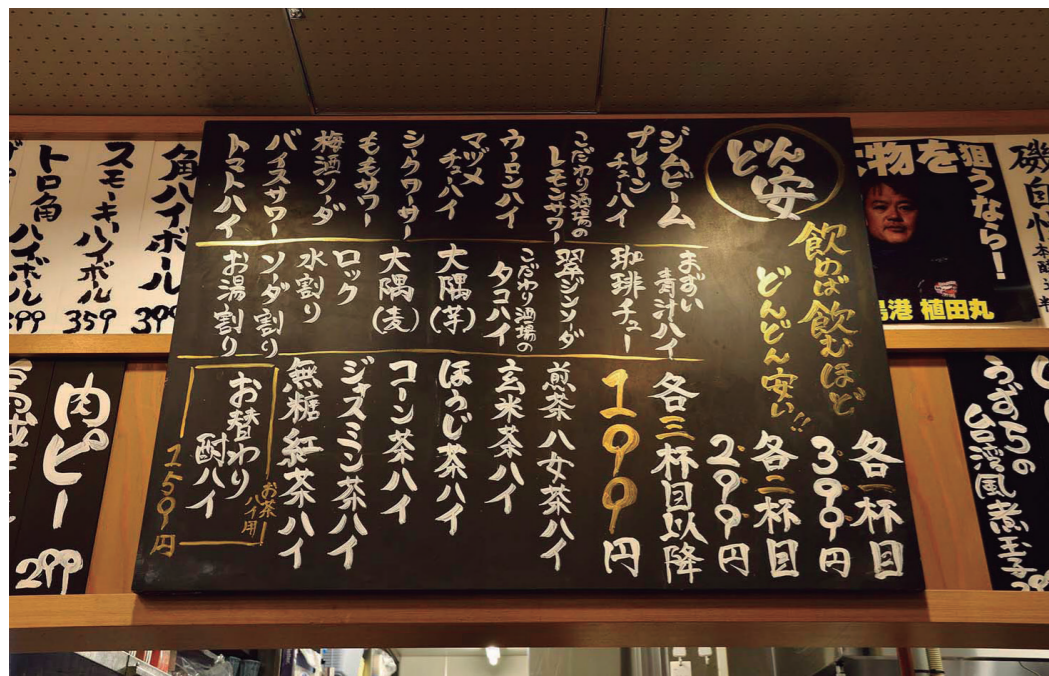 どん安
飲めば飲むほど
どんどん安い!!
各一杯目
399円
各二杯目
299円
各三杯目以降
199円
ジムビーム
プレーン
チューハイ
こだわり酒場の
レモンサワー
ウーロンハイ
マヅメ
チューハイ
シークワーサー
ももサワー
梅酒ソーダ
バイスサワー
トマトハイ
まずい
青汁ハイ
珈琲チュー
翠ジンソーダ
こだわり酒場の
タコハイ
大隅(芋)
大隅(麦)
ロック
水割り
ソーダ割り
お湯割り
煎茶 八女茶ハイ
玄米茶ハイ
ほうじ茶ハイ
コーン茶ハイ
ジャスミン茶ハイ
無糖 紅茶ハイ
お替わり
酎ハイ
お茶
ハイ用
259円
物を
狙うなら!
港 植田丸
磯自慢
うずらの
台湾風煮玉子
角ハイボール
399
スモーキーハイボール
359
トロ角ハイボール
肉ピー
299